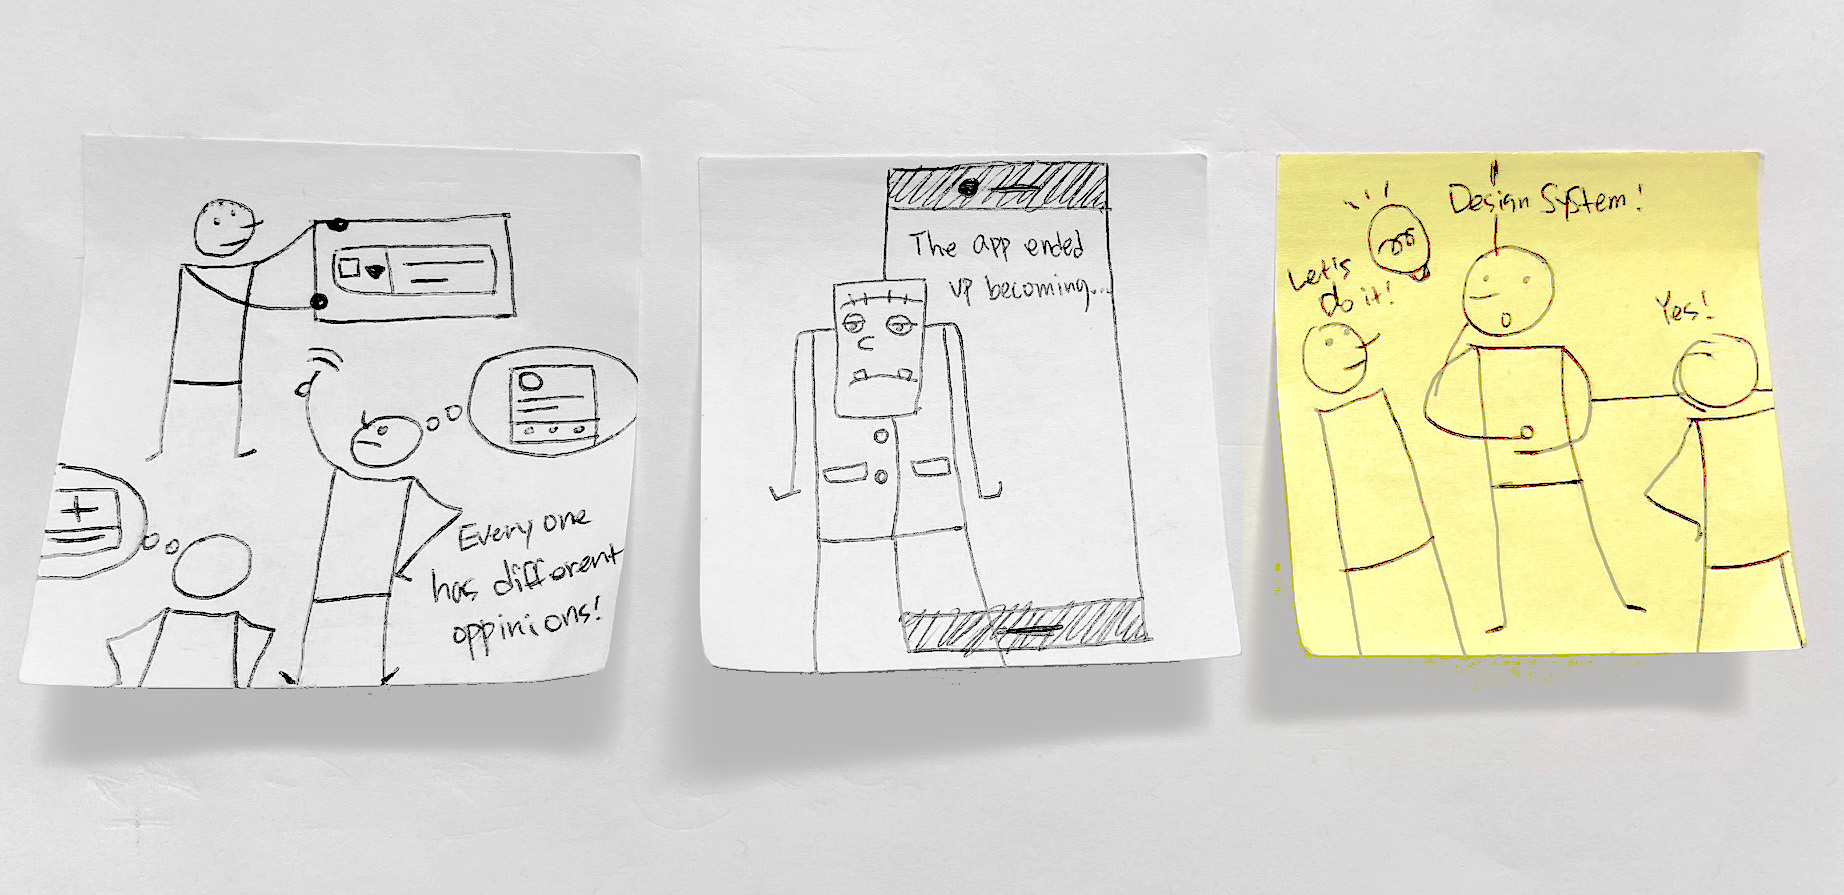 Everyone
has different
oppinions!
The app ended
up becoming...
Design System!
Let's
do it!
Yes!